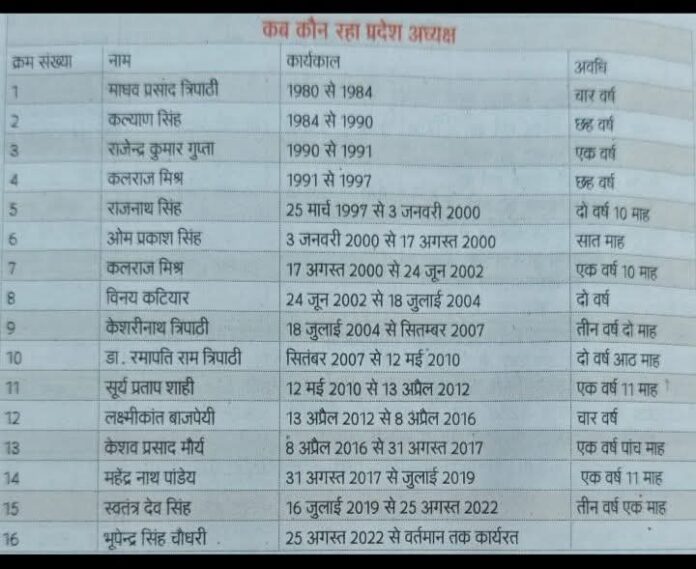 कब कौन रहा प्रदेश अध्यक्ष
क्रम संख्या नाम कार्यकाल अवधि
1 माधव प्रसाद त्रिपाठी 1980 से 1984 चार वर्ष
2 कल्याण सिंह 1984 से 1990 छह वर्ष
3 राजेन्द्र कुमार गुप्ता 1990 से 1991 एक वर्ष
4 कलराज मिश्र 1991 से 1997 छह वर्ष
5 राजनाथ सिंह 25 मार्च 1997 से 3 जनवरी 2000 दो वर्ष 10 माह
6 ओम प्रकाश सिंह 3 जनवरी 2000 से 17 अगस्त 2000 सात माह
7 कलराज मिश्र 17 अगस्त 2000 से 24 जून 2002 एक वर्ष 10 माह
8 विनय कटियार 24 जून 2002 से 18 जुलाई 2004 दो वर्ष
9 केशरीनाथ त्रिपाठी 18 जुलाई 2004 से सितम्बर 2007 तीन वर्ष दो माह
10 डा. रमापति राम त्रिपाठी सितंबर 2007 से 12 मई 2010 दो वर्ष आठ माह
11 सूर्य प्रताप शाही 12 मई 2010 से 13 अप्रैल 2012 एक वर्ष 11 माह
12 लक्ष्मीकांत बाजपेयी 13 अप्रैल 2012 से 8 अप्रैल 2016 चार वर्ष
13 केशव प्रसाद मौर्य 8 अप्रैल 2016 से 31 अगस्त 2017 एक वर्ष पांच माह
14 महेंद्र नाथ पांडेय 31 अगस्त 2017 से जुलाई 2019 एक वर्ष 11 माह
15 स्वतंत्र देव सिंह 16 जुलाई 2019 से 25 अगस्त 2022 तीन वर्ष एक माह
16 भूपेन्द्र सिंह चौधरी 25 अगस्त 2022 से वर्तमान तक कार्यरत